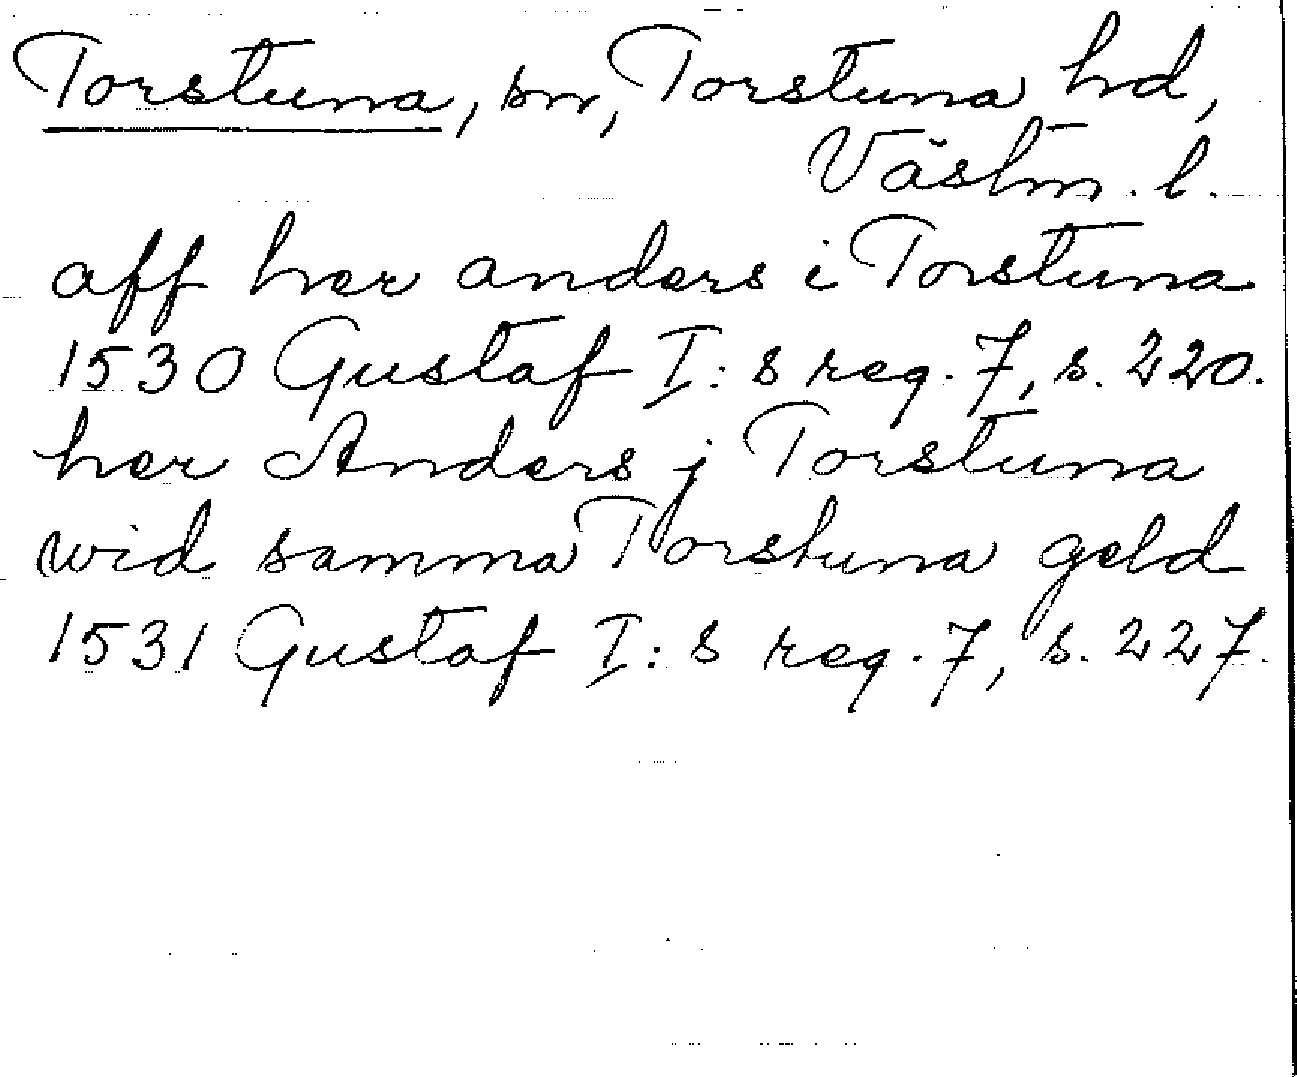 Torstuna, sn, Torstuna hd,
Västm. l.
aff her anders i Torstuna
1530 Gustaf I:s reg. 7, s. 220.
her Anders j Torstuna
wid samma Torstuna geld
1531 Gustaf I:s reg. 7, s. 227.